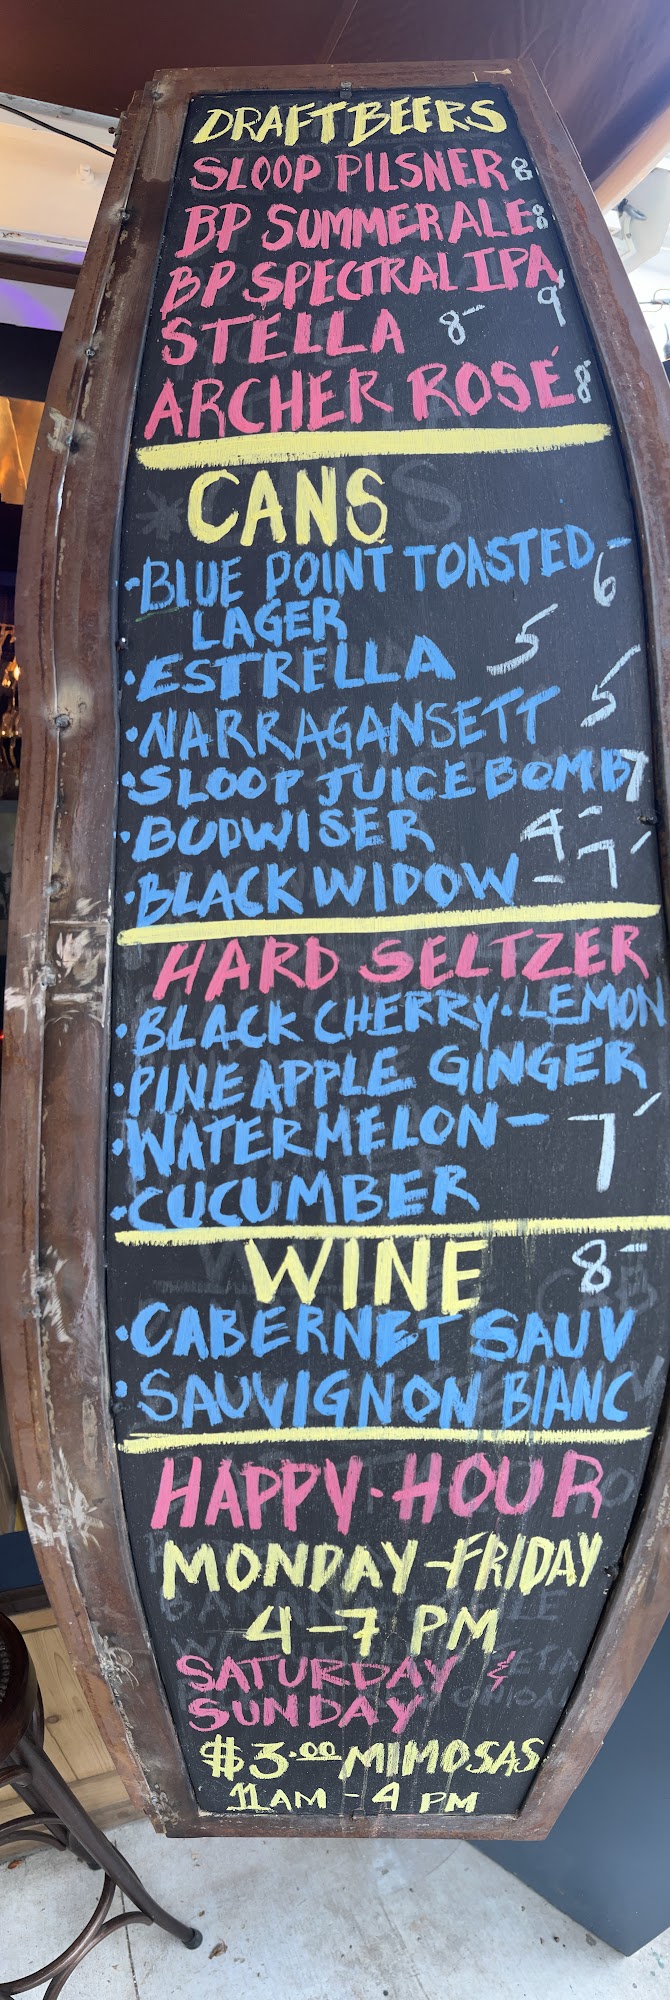 DRAFT BEERS
SLOOP PILSNER 8
BP SUMMER ALE 8
BP SPECTRAL IPA 9
STELLA 8-
ARCHER ROSÉ 8
CANS
·BLUE POINT TOASTED - 6
LAGER
·ESTRELLA 5
·NARRAGANSETT 5
·SLOOP JUICE BOMB 7
·BUDWISER 4-
·BLACK WIDOW - 7
HARD SELTZER
·BLACK CHERRY·LEMON
·PINEAPPLE GINGER
·WATERMELON - 7
·CUCUMBER
WINE 8-
·CABERNET SAUV
·SAUVIGNON BLANC
HAPPY·HOUR
MONDAY-FRIDAY
4-7 PM
SATURDAY &
SUNDAY
$3.00 MIMOSAS
11AM - 4 PM